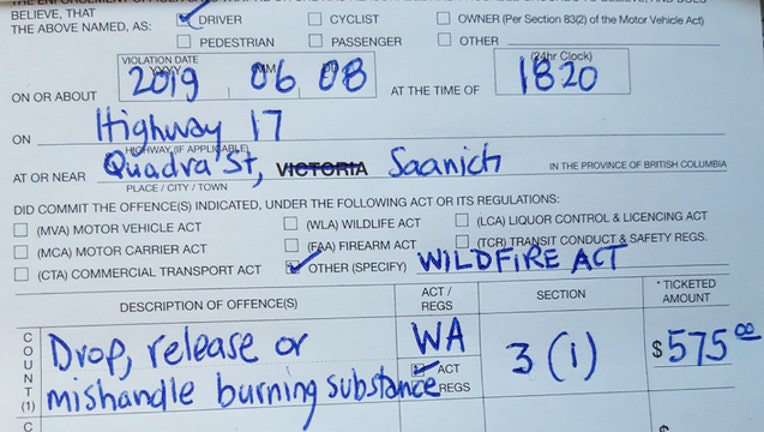 BELIEVE, THAT
THE ABOVE NAMED, AS:
DRIVER CYCLIST OWNER (Per Section 83(2) of the Motor Vehicle Act)
PEDESTRIAN PASSENGER OTHER
VIOLATION DATE (24hr Clock)
YYYY MM DD
ON OR ABOUT 2019 06 08 AT THE TIME OF 1820
ON Highway 17
HIGHWAY (IF APPLICABLE)
AT OR NEAR Quadra St, VICTORIA Saanich IN THE PROVINCE OF BRITISH COLUMBIA
PLACE / CITY / TOWN
DID COMMIT THE OFFENCE(S) INDICATED, UNDER THE FOLLOWING ACT OR ITS REGULATIONS:
(MVA) MOTOR VEHICLE ACT (WLA) WILDLIFE ACT (LCA) LIQUOR CONTROL & LICENCING ACT
(MCA) MOTOR CARRIER ACT (FAA) FIREARM ACT (TCR) TRANSIT CONDUCT & SAFETY REGS.
(CTA) COMMERCIAL TRANSPORT ACT OTHER (SPECIFY) WILDFIRE ACT
DESCRIPTION OF OFFENCE(S) ACT / REGS SECTION * TICKETED AMOUNT
COUNT (1) Drop, release or WA 3 (1) $575 00
mishandle burning substance ACT REGS
C $